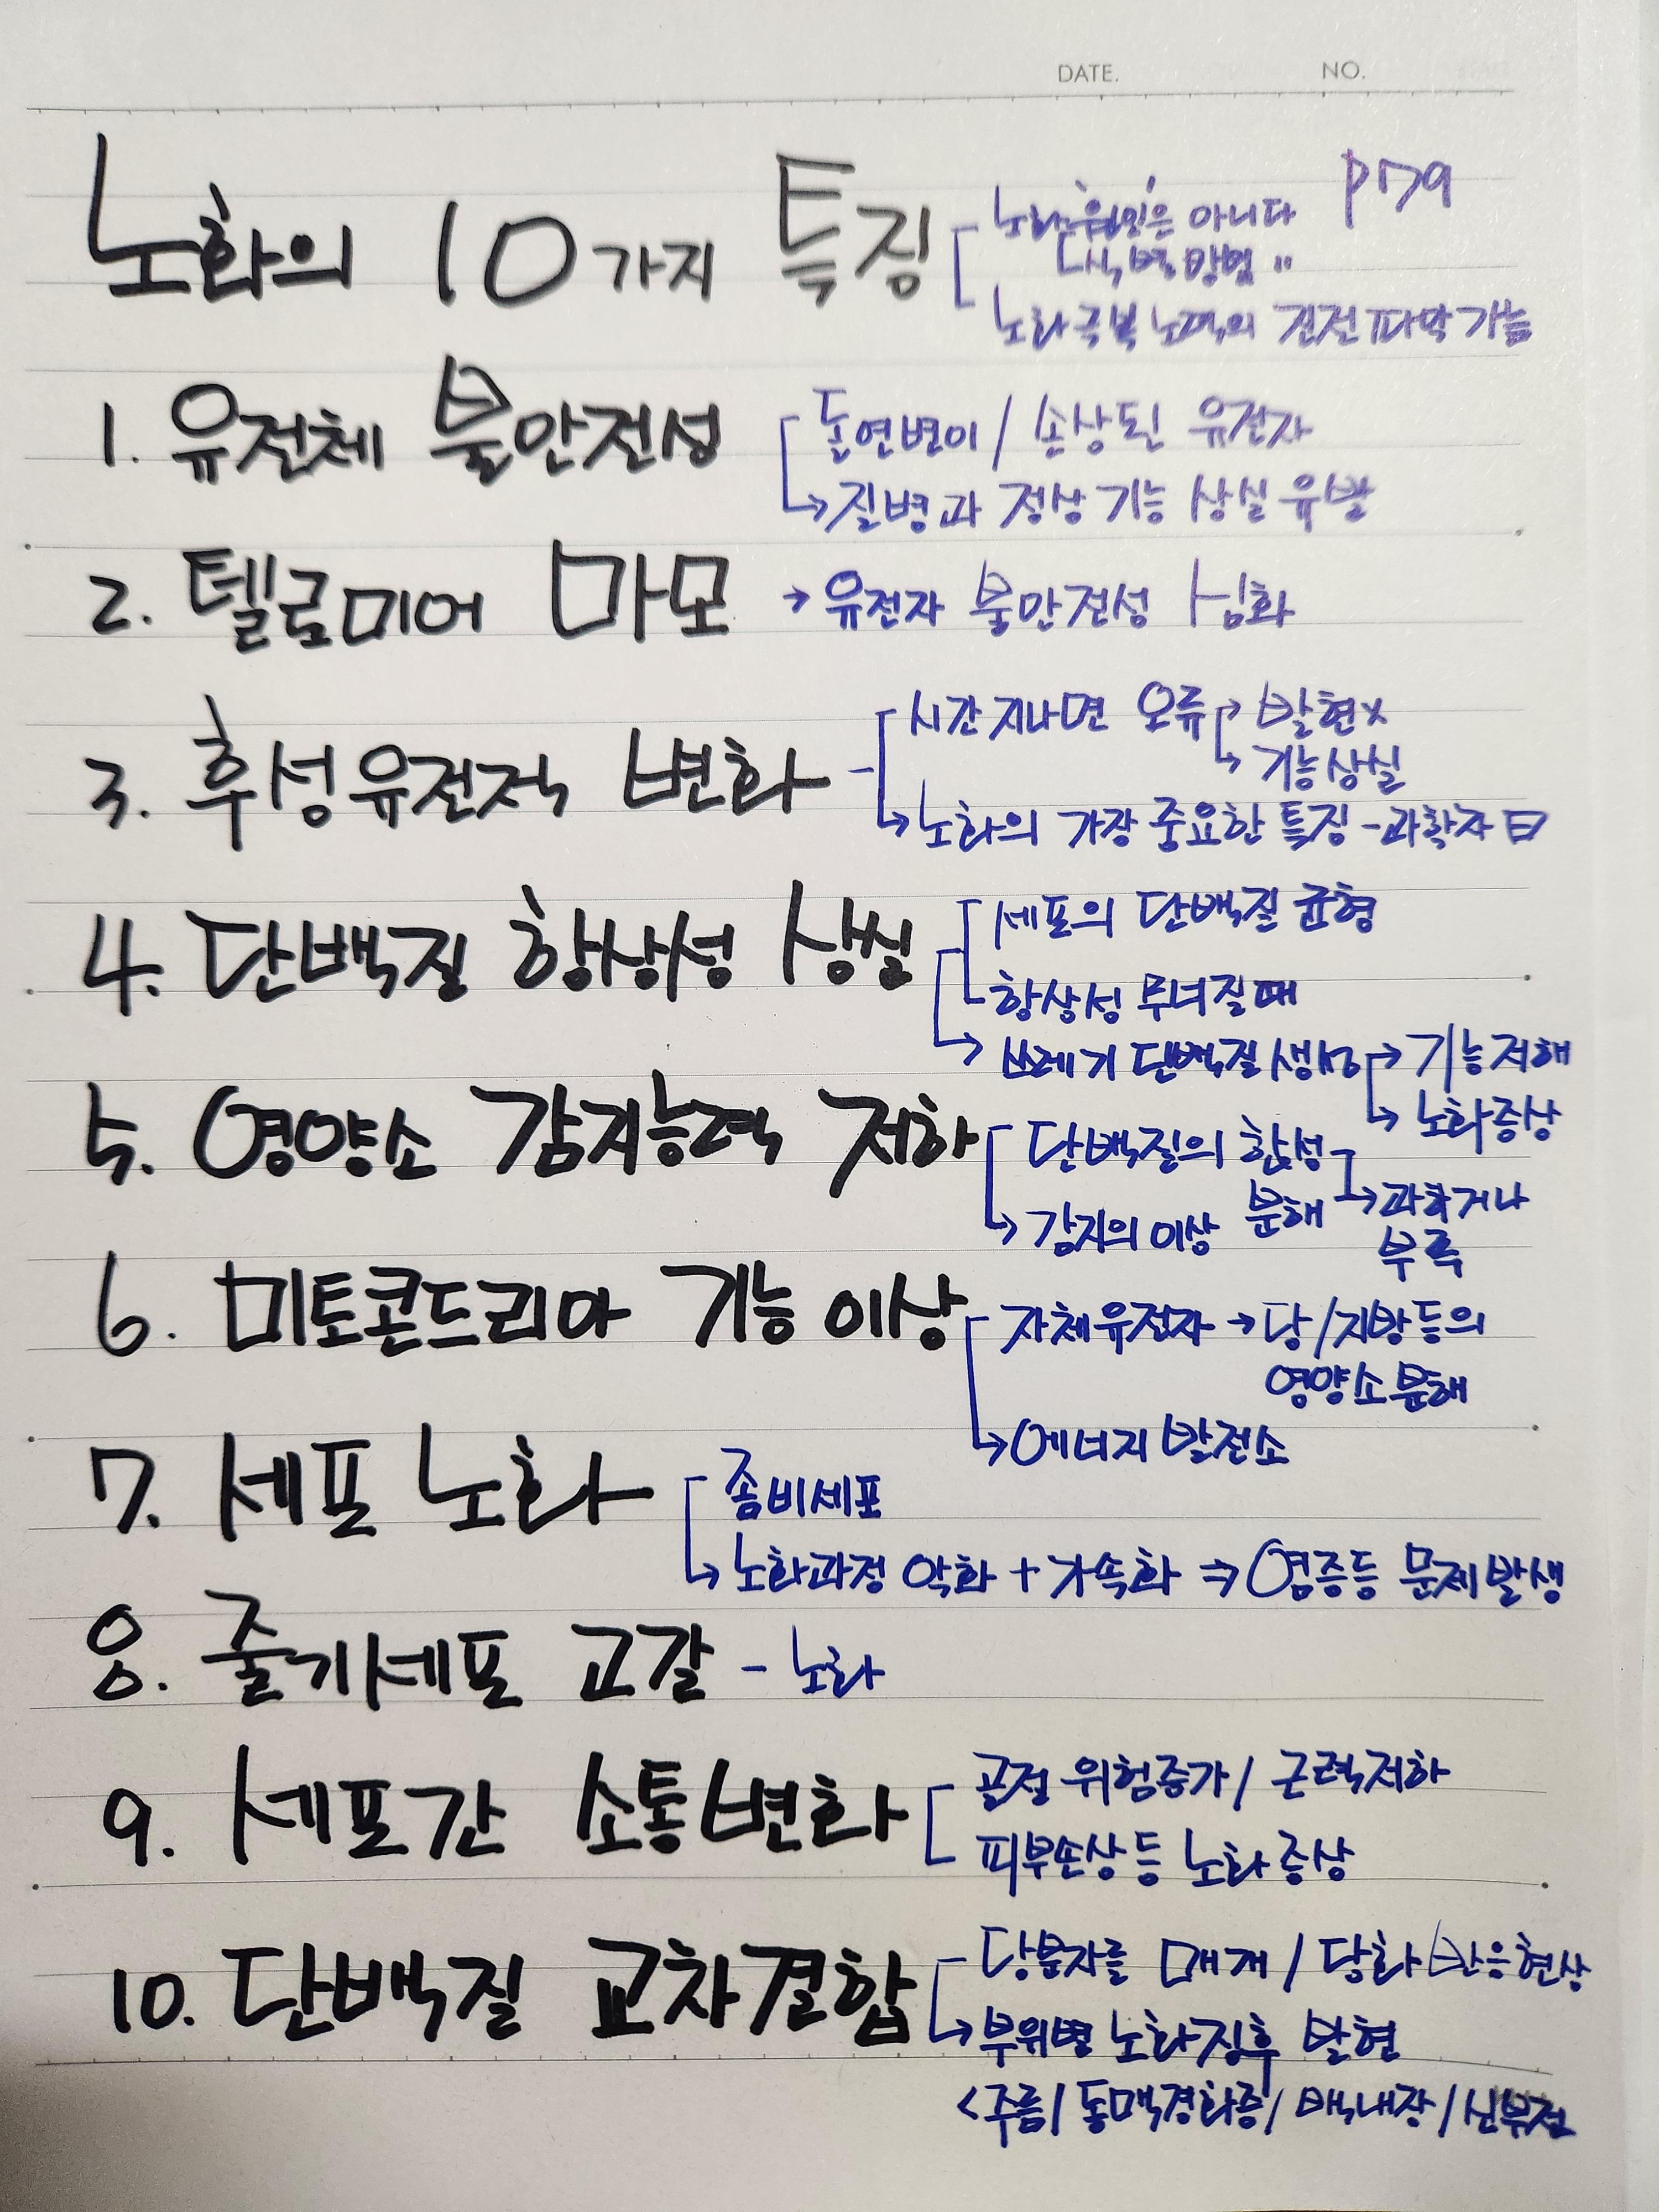 DATE. NO.
노화의 10가지 특징
P179
노화 원인은 아니다
식별 방법 "
노화극복 노력의 진전 파악 가능
1. 유전체 불안전성
돌연변이 / 손상된 유전자
→ 질병과 정상 기능 상실 유발
2. 텔로미어 마모 → 유전자 불안전성 심화
3. 후성유전적 변화
시간 지나면 오류 → 발현x
→ 기능상실
→ 노화의 가장 중요한 특징 - 과학자 曰
4. 단백질 항상성 상실
세포의 단백질 균형
항상성 무너질때
→ 쓰레기 단백질 생성 → 기능저해
→ 노화증상
5. 영양소 감지능력 저하
단백질의 합성
분해 → 과하거나
부족
→ 감지의 이상
6. 미토콘드리아 기능 이상
자체유전자 → 당/지방등의
영양소분해
→ 에너지 발전소
7. 세포 노화
좀비세포
→ 노화과정 악화 + 가속화 ⇒ 염증등 문제발생
8. 줄기세포 고갈 - 노화
9. 세포간 소통변화
골절 위험증가 / 근력저하
피부손상등 노화증상
10. 단백질 교차결합
당분자를 매개 / 당화반응현상
→ 부위별 노화징후 발현
< 주름 / 동맥경화증 / 백내장 / 신부전